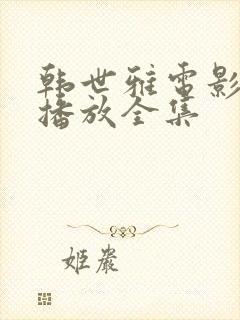 韩世雅电影
播放全集
姬岩